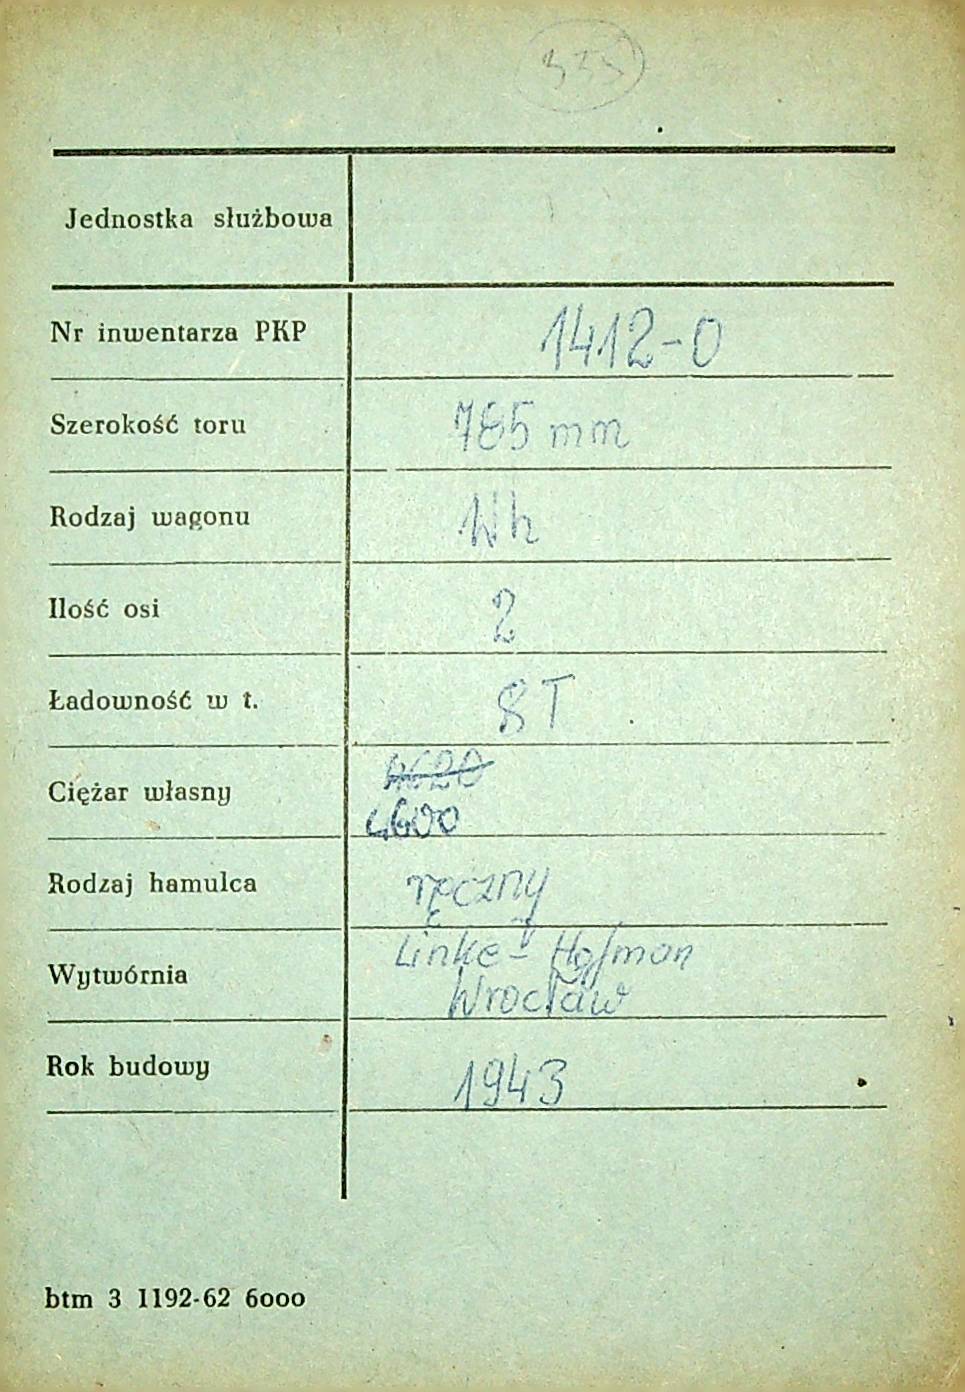 335
Jednostka służbowa
Nr inwentarza PKP 1412-0
Szerokość toru 785 mm
Rodzaj wagonu Wh
Ilość osi 2
Ładowność w t. 8T
Ciężar własny 4620
4600
Rodzaj hamulca ręczny
Wytwórnia Linke - Hofman
Wrocław
Rok budowy 1943
btm 3 1192-62 6000